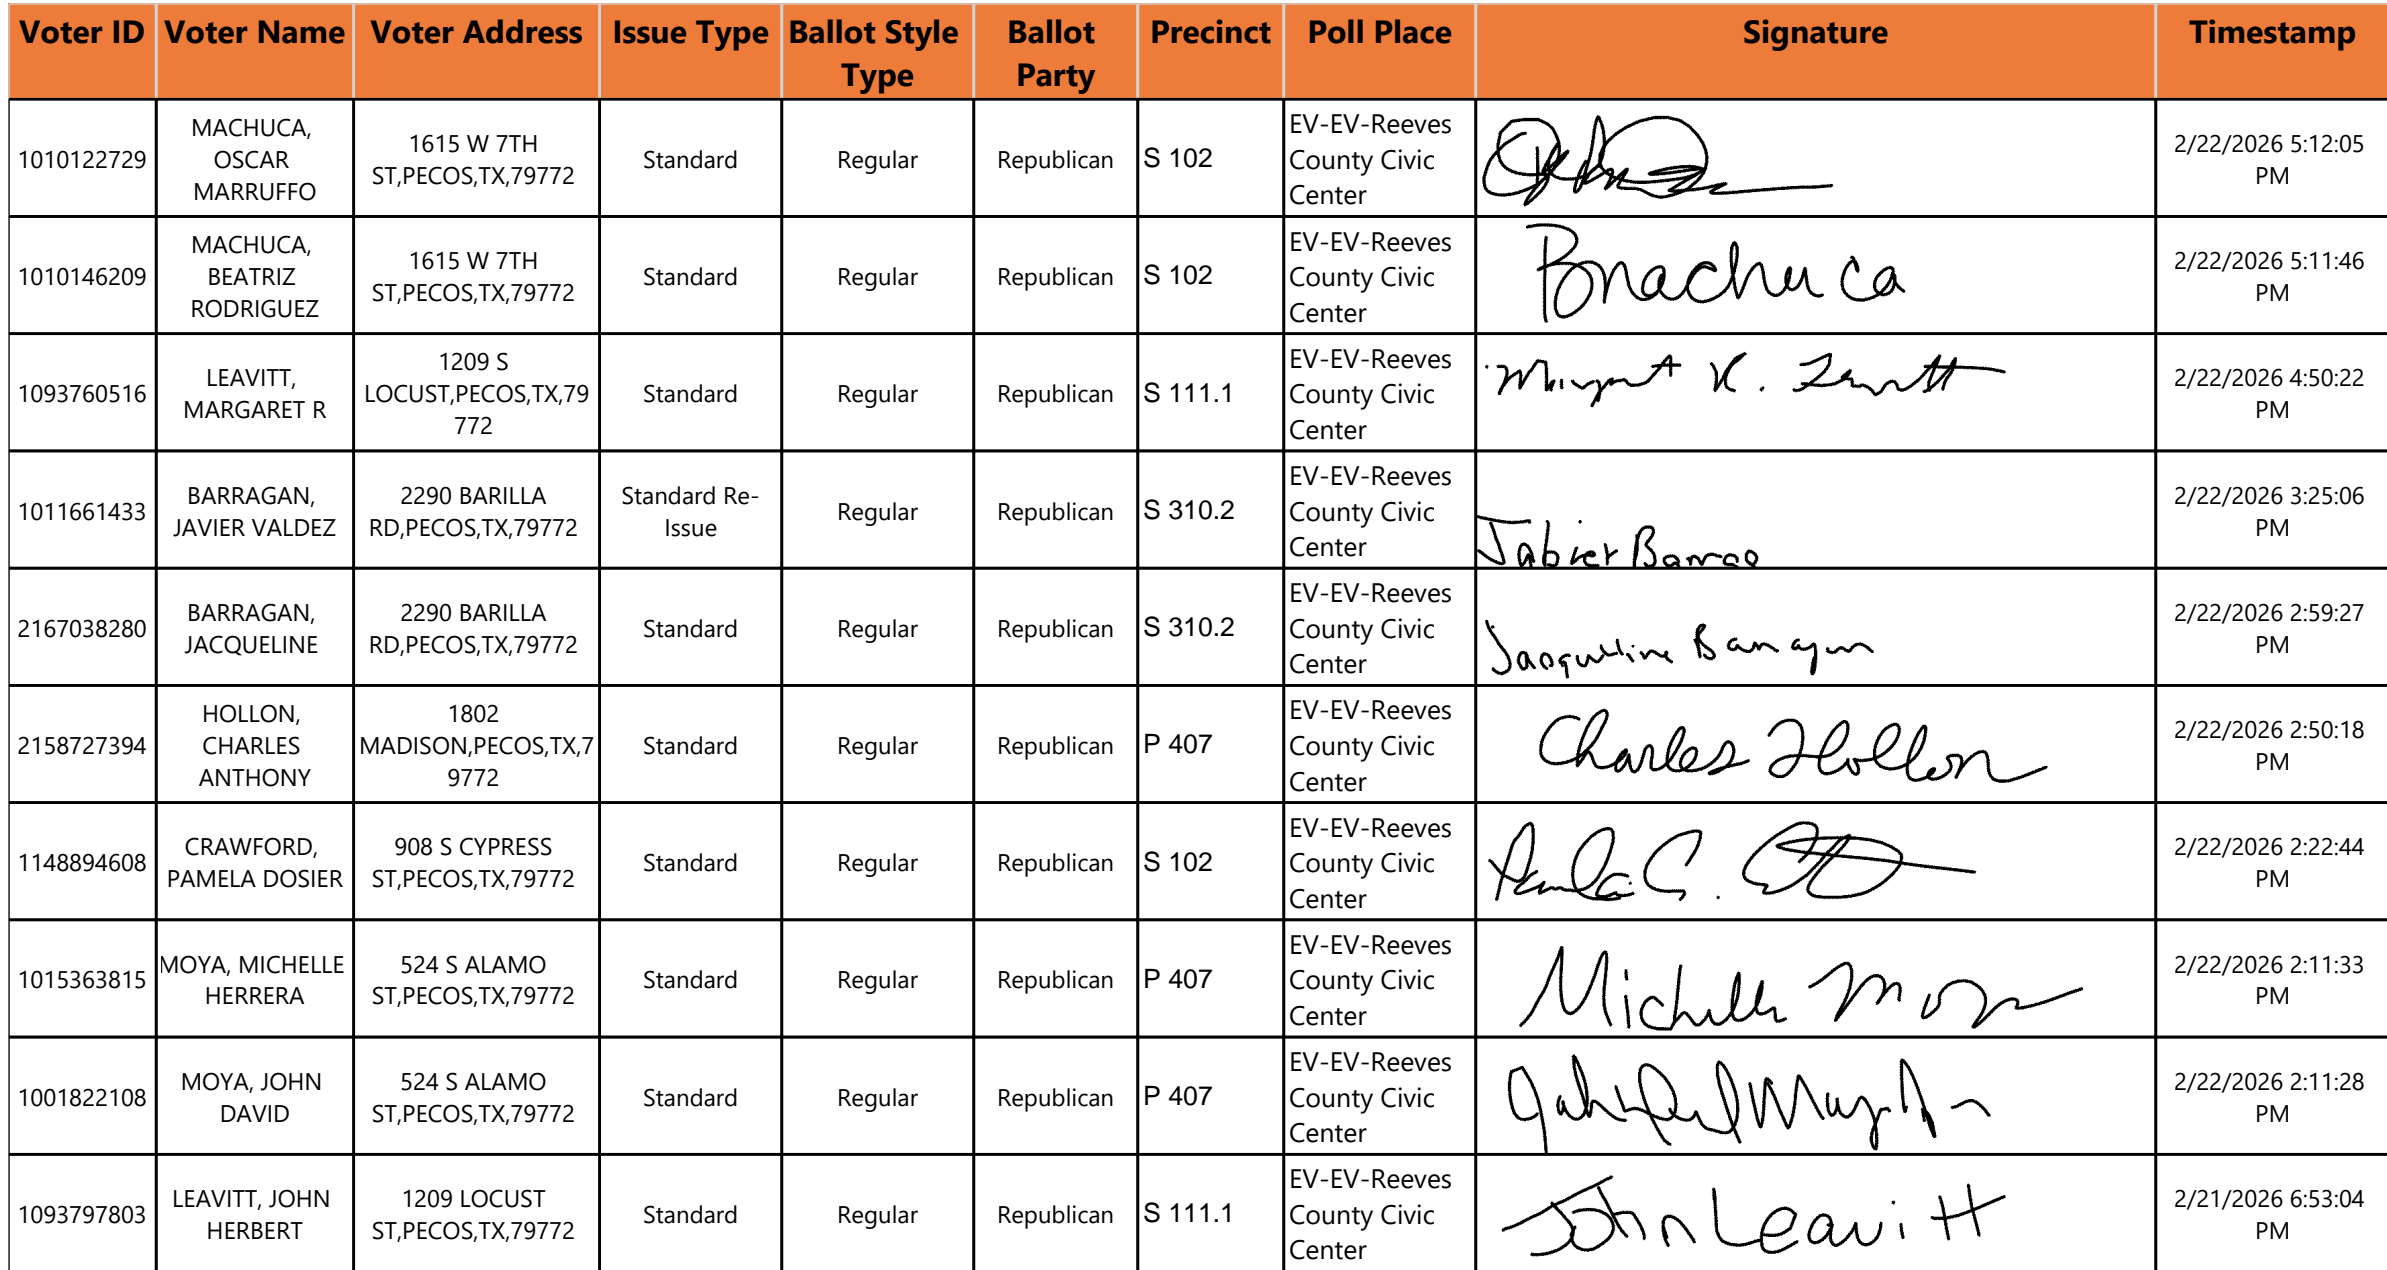 Voter ID Voter Name Voter Address Issue Type Ballot Style Type Ballot Party Precinct Poll Place Signature Timestamp
1010122729 MACHUCA, OSCAR MARRUFFO 1615 W 7TH ST,PECOS,TX,79772 Standard Regular Republican S 102 EV-EV-Reeves County Civic Center 2/22/2026 5:12:05 PM
1010146209 MACHUCA, BEATRIZ RODRIGUEZ 1615 W 7TH ST,PECOS,TX,79772 Standard Regular Republican S 102 EV-EV-Reeves County Civic Center BMachuca 2/22/2026 5:11:46 PM
1093760516 LEAVITT, MARGARET R 1209 S LOCUST,PECOS,TX,79772 Standard Regular Republican S 111.1 EV-EV-Reeves County Civic Center 2/22/2026 4:50:22 PM
1011661433 BARRAGAN, JAVIER VALDEZ 2290 BARILLA RD,PECOS,TX,79772 Standard Re-Issue Regular Republican S 310.2 EV-EV-Reeves County Civic Center 2/22/2026 3:25:06 PM
2167038280 BARRAGAN, JACQUELINE 2290 BARILLA RD,PECOS,TX,79772 Standard Regular Republican S 310.2 EV-EV-Reeves County Civic Center 2/22/2026 2:59:27 PM
2158727394 HOLLON, CHARLES ANTHONY 1802 MADISON,PECOS,TX,79772 Standard Regular Republican P 407 EV-EV-Reeves County Civic Center Charles Hollon 2/22/2026 2:50:18 PM
1148894608 CRAWFORD, PAMELA DOSIER 908 S CYPRESS ST,PECOS,TX,79772 Standard Regular Republican S 102 EV-EV-Reeves County Civic Center 2/22/2026 2:22:44 PM
1015363815 MOYA, MICHELLE HERRERA 524 S ALAMO ST,PECOS,TX,79772 Standard Regular Republican P 407 EV-EV-Reeves County Civic Center Michelle Moya 2/22/2026 2:11:33 PM
1001822108 MOYA, JOHN DAVID 524 S ALAMO ST,PECOS,TX,79772 Standard Regular Republican P 407 EV-EV-Reeves County Civic Center 2/22/2026 2:11:28 PM
1093797803 LEAVITT, JOHN HERBERT 1209 LOCUST ST,PECOS,TX,79772 Standard Regular Republican S 111.1 EV-EV-Reeves County Civic Center John Leavitt 2/21/2026 6:53:04 PM